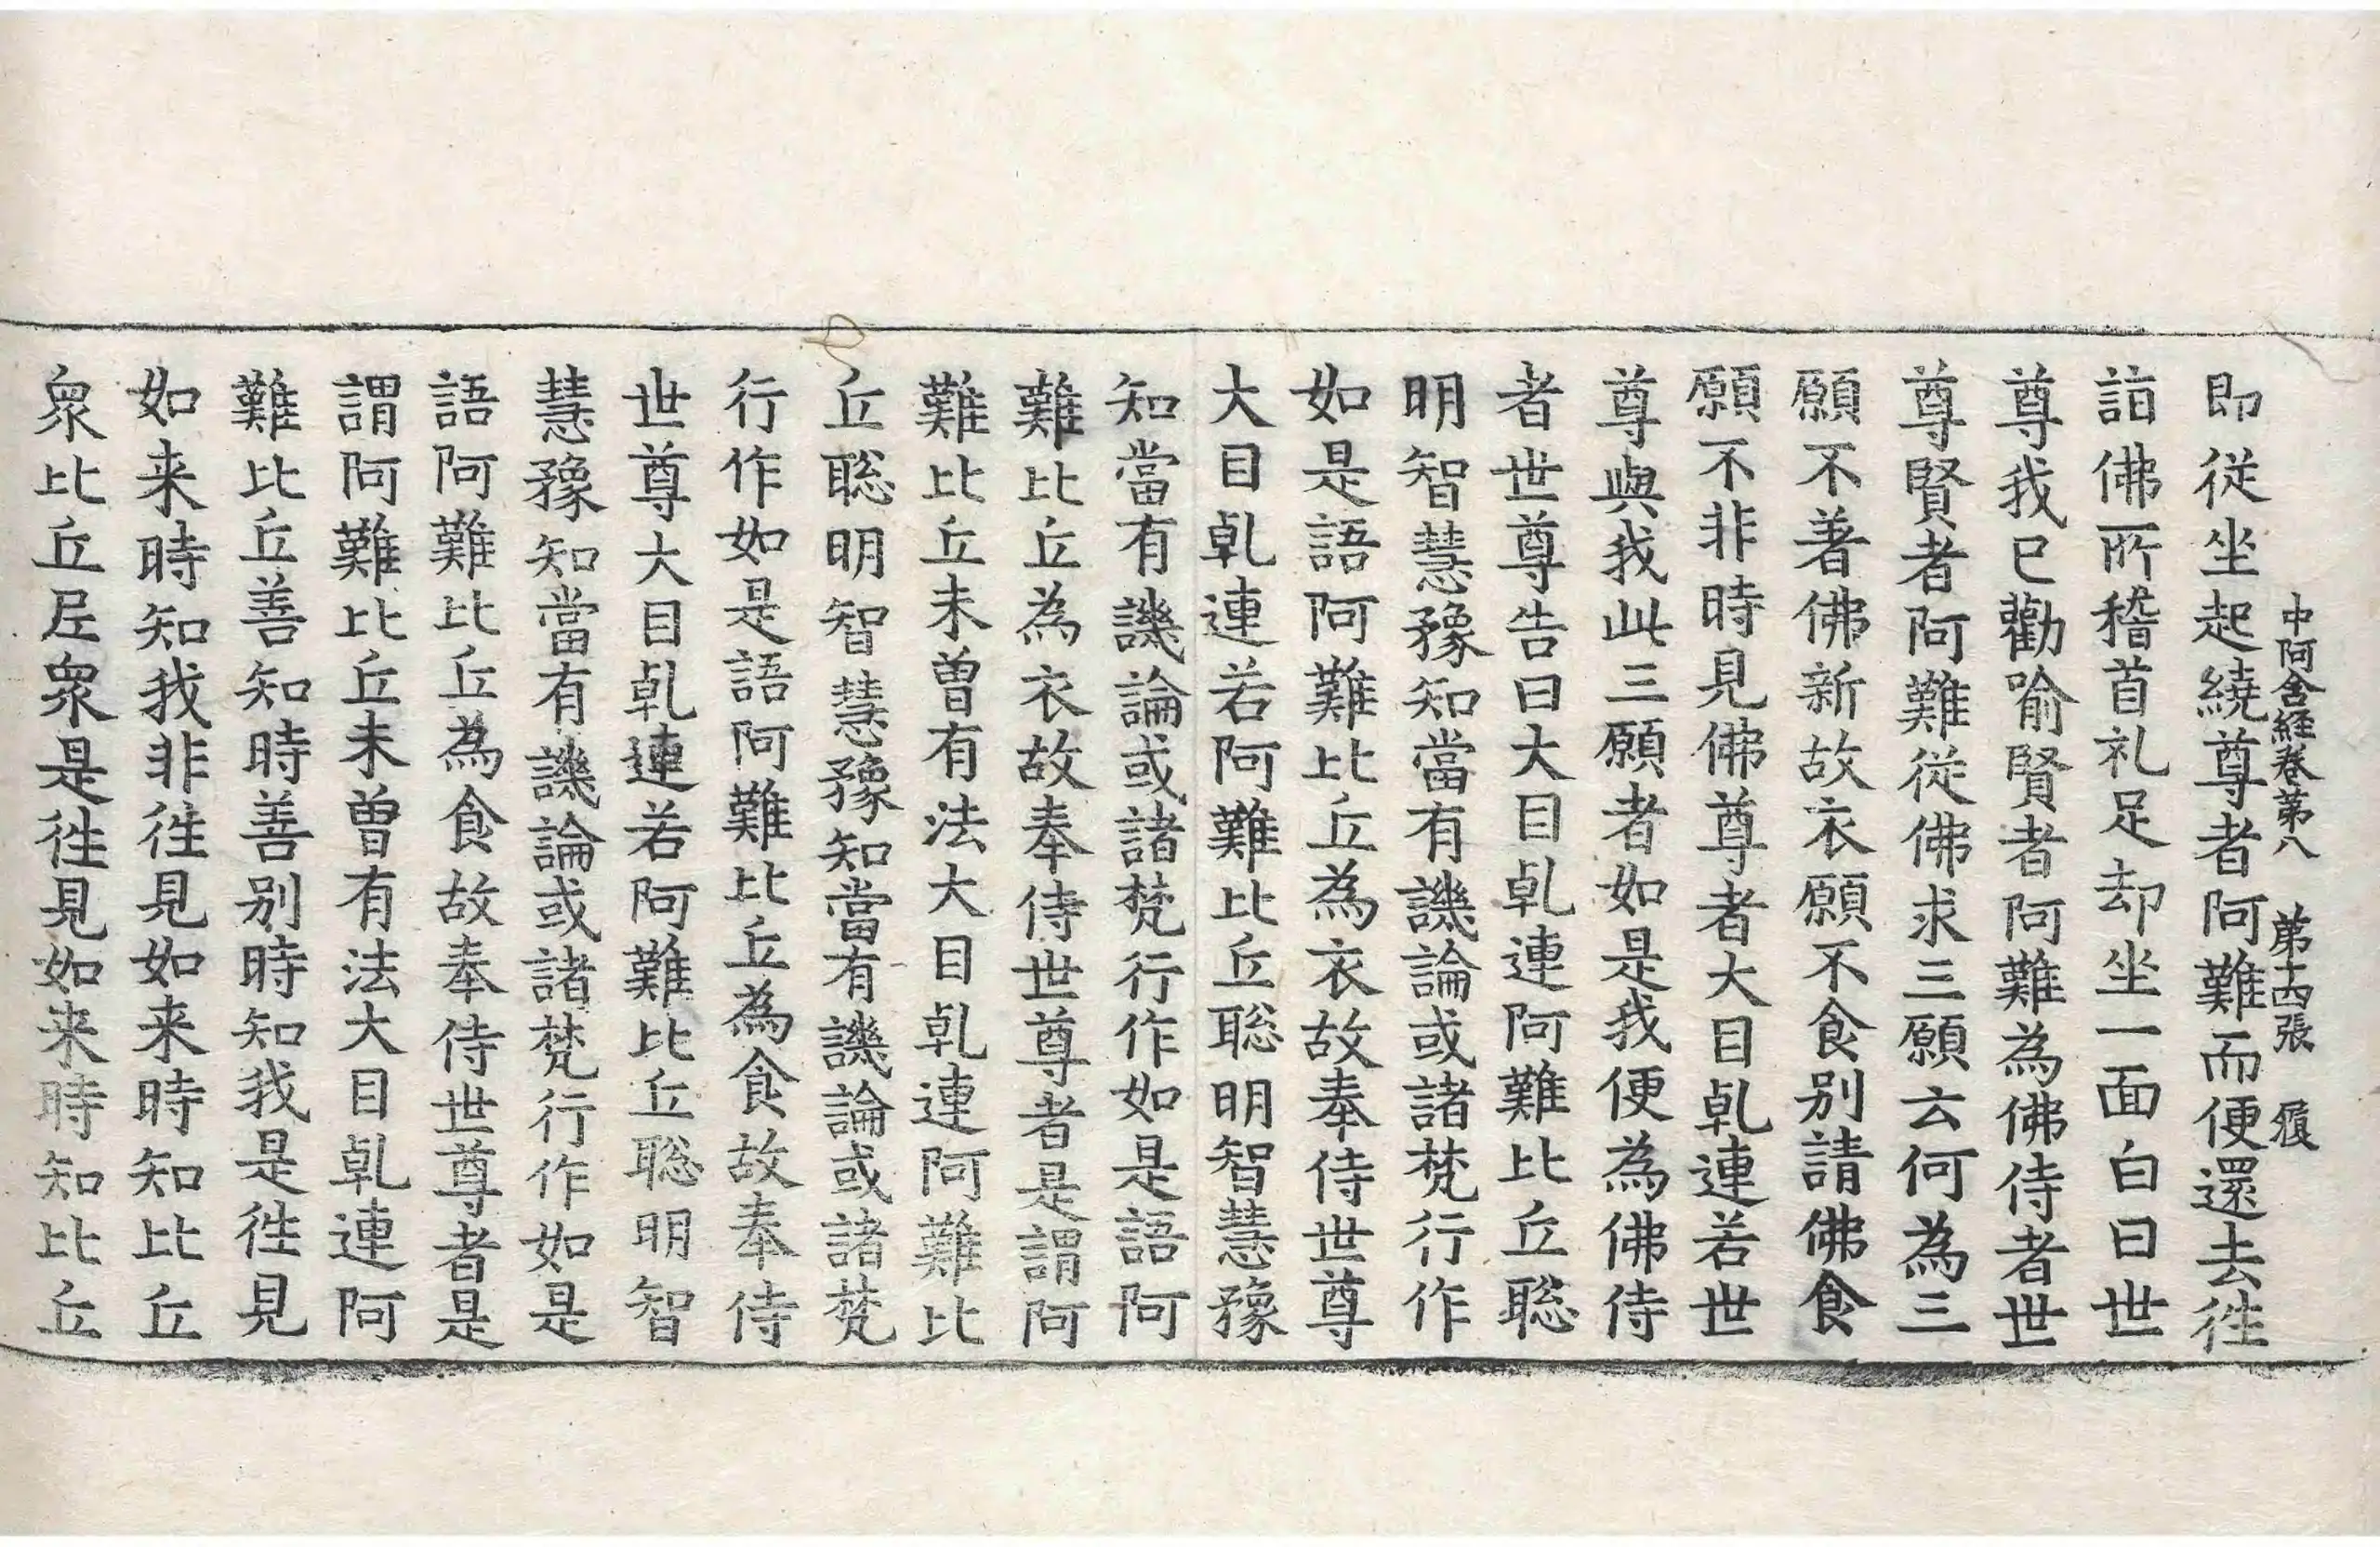 中阿含經卷第八 第十四張 履
即從坐起繞尊者阿難而便還去徃
詣佛所稽首礼足却坐一面白曰世
尊我已勸喻賢者阿難為佛侍者世
尊賢者阿難從佛求三願云何為三
願不著佛新故衣願不食别請佛食
願不非時見佛尊者大目乹連若世
尊與我此三願者如是我便為佛侍
者世尊告曰大目乹連阿難比丘聡
明智慧豫知當有譏論或諸梵行作
如是語阿難比丘為衣故奉侍世尊
大目乹連若阿難比丘聡明智慧豫
知當有譏論或諸梵行作如是語阿
難比丘為衣故奉侍世尊者是謂阿
難比丘未曽有法大目乹連阿難比
丘聡明智慧豫知當有譏論或諸梵
行作如是語阿難比丘為食故奉侍
世尊大目乹連若阿難比丘聡明智
慧豫知當有譏論或諸梵行作如是
語阿難比丘為食故奉侍世尊者是
謂阿難比丘未曽有法大目乹連阿
難比丘善知時善别時知我是徃見
如来時知我非徃見如来時知比丘
衆比丘尼衆是徃見如来時知比丘